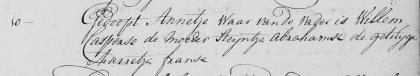 10 — Gedoopt Annetje waar van de vader is Willem
aspense de Moeder Steijntje Abrahamse de getuijge
Annetje franse